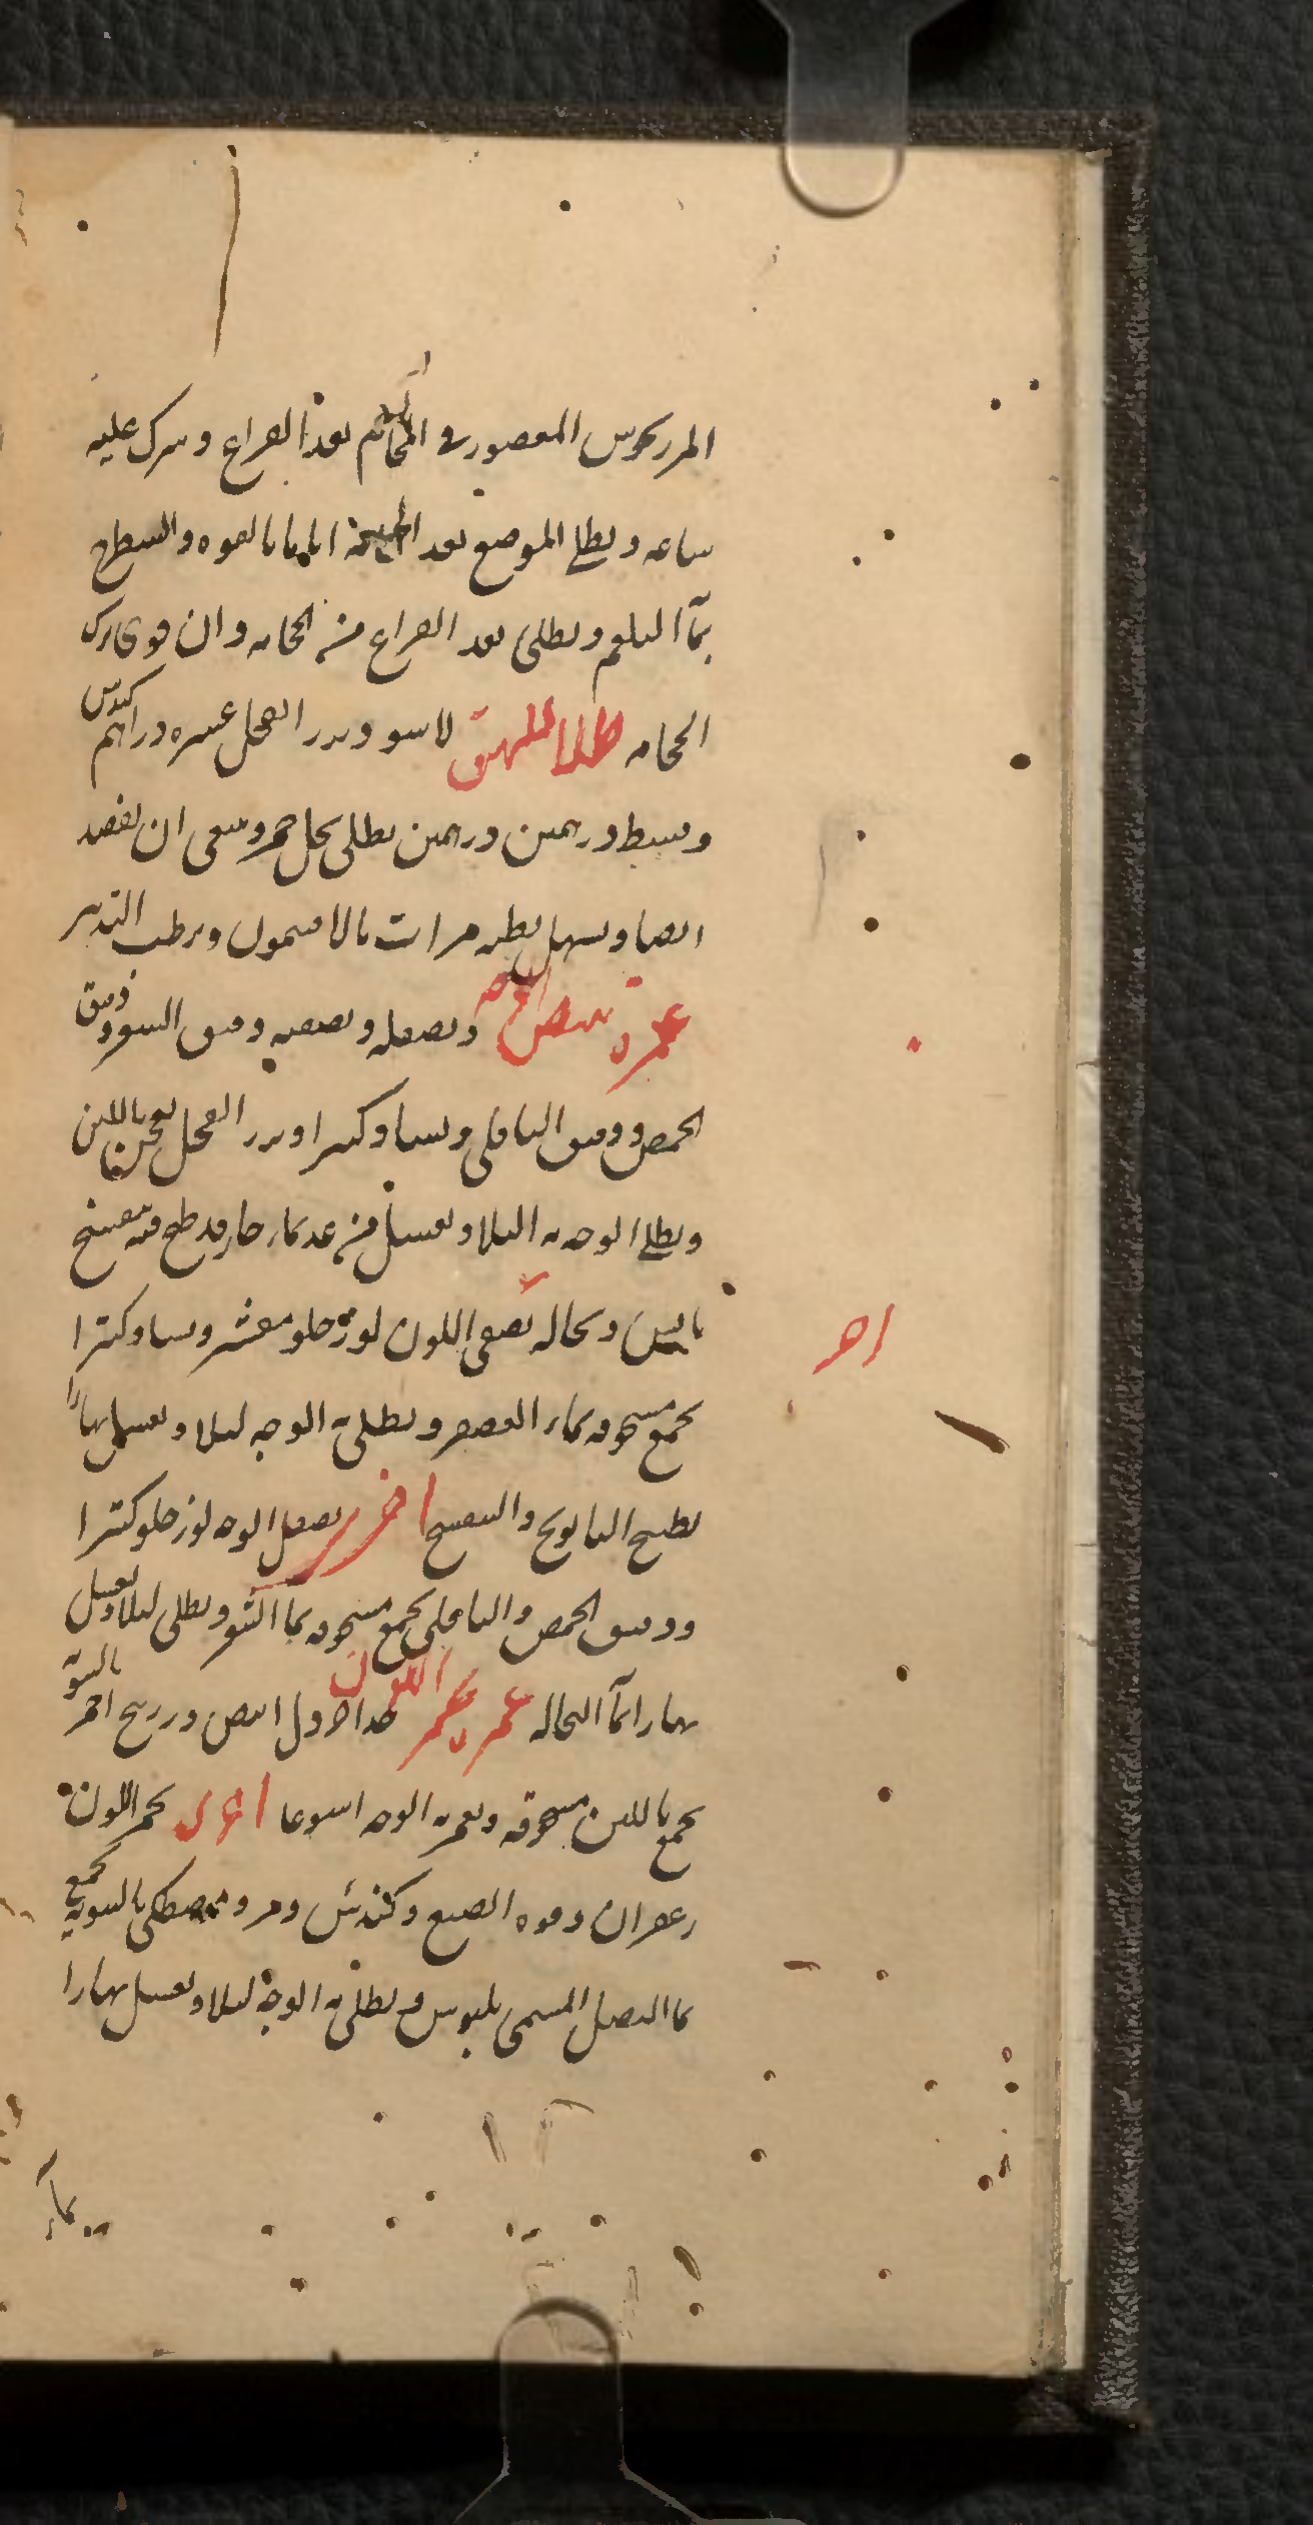 المرزنجوش المعصور في المحاجم بعد الفراغ ويترك عليه
ساعه ويطلى الموضع بعد الحجامة اياما بالفوه والشيطرج
بمآ البلغم ويطلى بعد الفراغ من الحجامه وان
الحجامه طلاء للبهق الاسود وبزر الفجل عشره دراهم كندس
وقسط درهمين درهمين يطلى بخل خمر وينبغى ان يفصد
ايضا ويسهل بطنه مرات بالافتيمون ويرطب التدبير
غمرة تبيض الوجه وتصقله وتصفيه دقيق
الحمص ودقيق الباقلى ونشا وكثيرا وبزر الفجل يعجن باللبن
ويطلى الوجه به اليلا ويغسل من غد بماء حار قد طبخ فيه بنفسج
يابس ونخاله تصفى اللون لوز حلو مقشر ونشا وكثيرا
اخر
يجمع مسحوقه بماء العصفر ويطلى به الوجه ليلا ويغسل نهارا
بطبيخ البابونج والبنفسج اخرى يصقل الوجه لوز حلو كثيرا
ودقيق الحمص والباقلى يجمع مسحوقه بمآ ويطلى ليلا ويغسل
نهارا بمآ النخاله غمرة تحمر اللون خردل ابيض وزرنيخ احمر بالسويه
يجمع باللبن مسحوقه ويغمر به الوجه اسبوعا اخرى يحمر اللون
زعفران وفوه الصبغ وكندس ومر ومصطكى بالسويه يجمع
بمآ البصل المسمى بلبوس ويطلى به الوجه ليلا ويغسل نهارا
بمآء